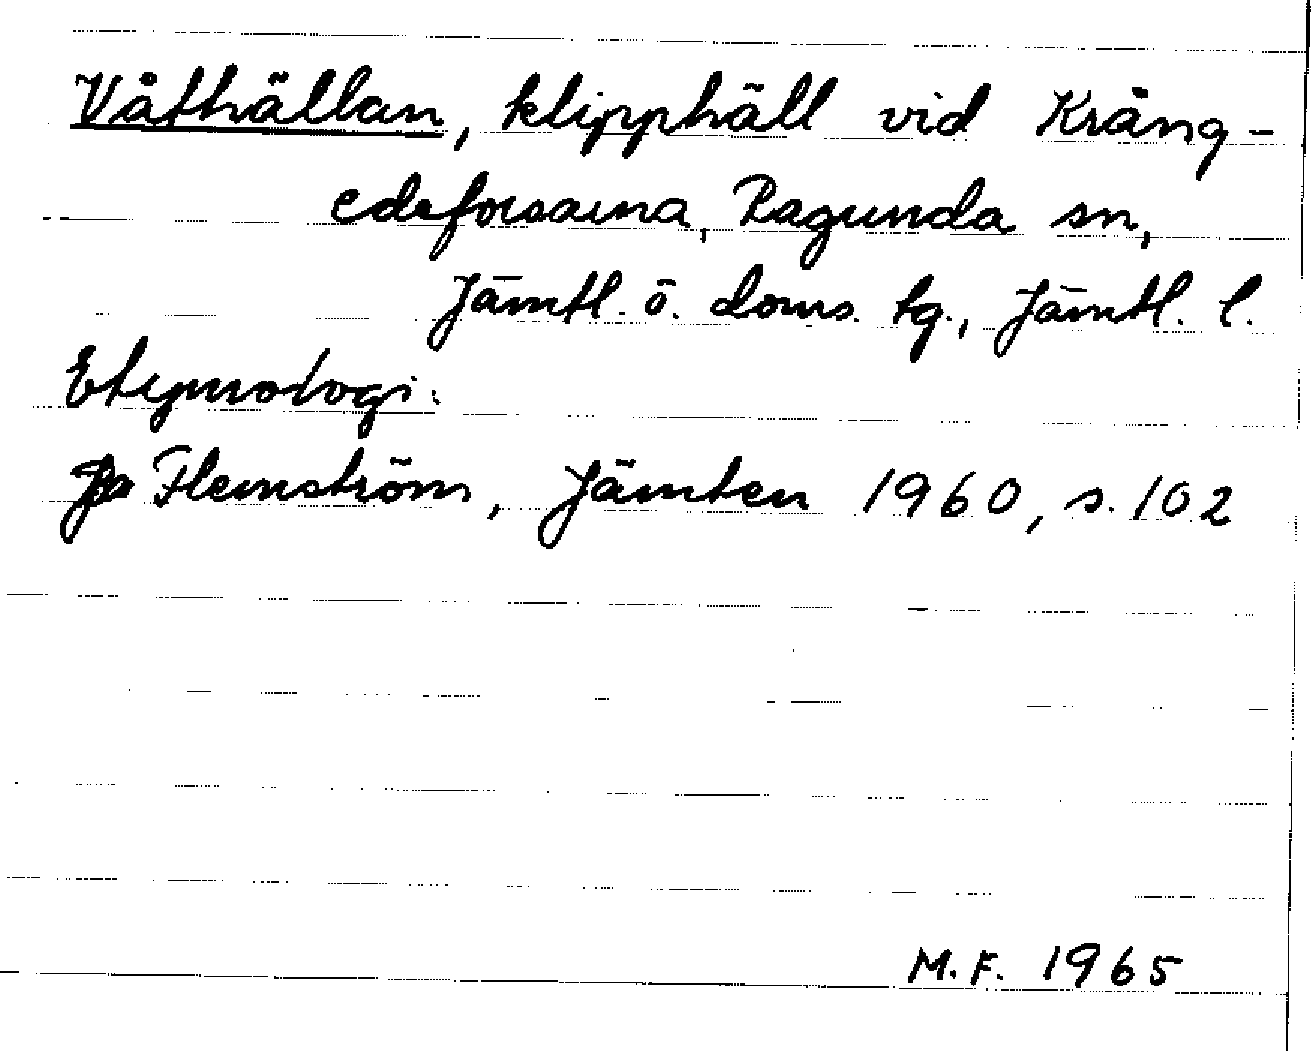 Våthällan, klipphäll vid Kräng-
edeforsarna, Ragunda sn,
Jämtl. ö. doms. tg., Jämtl. l.
Etymologi:
Flemström, Jämten 1960, s. 102
M.F. 1965